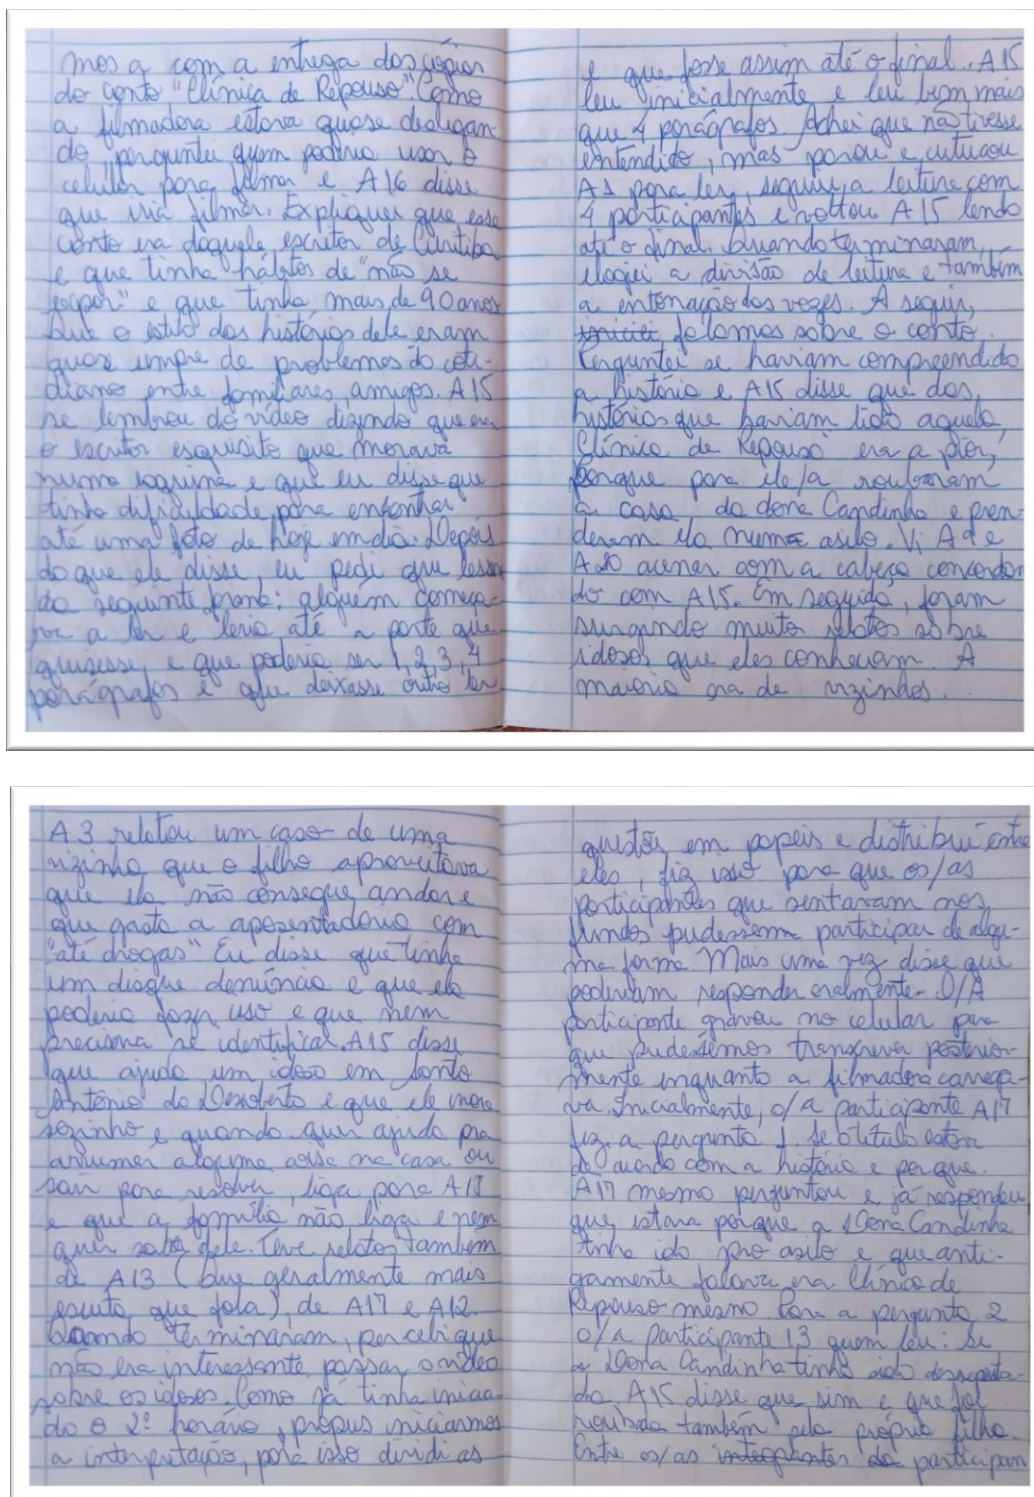 mos a com a entrega das cópias
do conto "Clínica de Repouso". Como
a filmadora estava quase desligan-
do, perguntei quem poderia usar o
celular para filmar e A16 disse
que iria filmar. Expliquei que esse
conto era daquele escritor de Curitiba
e que tinha hábitos de "não se
expor" e que tinha mais de 90 anos
Que o estilo das histórias dele eram
quase sempre de problemas do coti-
diano entre familiares, amigos. A15
se lembrou do vídeo dizendo que era
o escritor esquisito que morava
numa esquina e que eu disse que
tinha dificuldade para encontrar
até uma foto de hoje em dia. Depois
do que ele disse, eu pedi que lessem
da seguinte forma: alguém começa-
va a ler e leria até a parte que
quisesse, e que poderia ser 1, 2, 3, 4
parágrafos e que deixasse outro ler
e que fosse assim até o final. A15
leu inicialmente e leu bem mais
que 4 parágrafos. Achei que não tivesse
entendido, mas parou e cutucou
A1 para ler, seguiu a leitura com
4 participantes e voltou A15 lendo
até o final. Quando terminaram,
elogiei a divisão de leitura e também
a entonação das vozes. A seguir,
falamos sobre o conto.
Perguntei se haviam compreendido
a história e A15 disse que das
histórias que haviam lido aquela,
Clínica de Repouso era a pior,
porque para ele/a roubaram
a casa da dona Candinha e pren-
deram ela numa asilo. Vi A9 e
A20 acenar com a cabeça concordan-
do com A15. Em seguida, foram
surgindo muitos relatos sobre
idosos que eles conheciam. A
maioria era de vizinhos.
A3 relatou um caso de uma
vizinha que o filho aproveitava
que ela não consegue andar e
que gasta a aposentadoria com
"até drogas". Eu disse que tinha
um disque denúncia e que ela
poderia fazer uso e que nem
precisava se identificar. A15 disse
que ajuda um idoso em Santo
Antônio do Descoberto e que ele mora
sozinho e quando quer ajuda pra
arrumar alguma coisa na casa ou
sair para resolver, liga para A15
e que a família não liga e nem
quer saber dele. Teve relatos também
de A13 (que geralmente mais
escuta que fala), de A17 e A12.
Quando terminaram, percebi que
não era interessante passar o vídeo
sobre os idosos. Como já tinha inicia-
do o 2º horário, propus iniciarmos
a interpretação, para isso dividi as
questões em papeis e distribuí entre
eles, fiz isso para que os/as
participantes que sentaram nos
fundos pudessem participar de algu-
ma forma. Mais uma vez disse que
poderiam responder oralmente. O/A
participante gravou no celular para
que pudéssemos transcrever posterior-
mente enquanto a filmadora carrega-
va. Inicialmente, o/a participante A17
fez a pergunta 1. Se o título estava
de acordo com a história e por que.
A17 mesmo perguntou e já respondeu
que estava porque a Dona Candinha
tinha ido pro asilo e que anti-
gamente falava era Clínica de
Repouso mesmo. Para a pergunta 2
o/a participante 13 quem leu: Se
a Dona Candinha tinha sido desrespeita-
da. A15 disse que sim e que foi
roubada também pelo próprio filho.
Entre os/as integrantes da participan